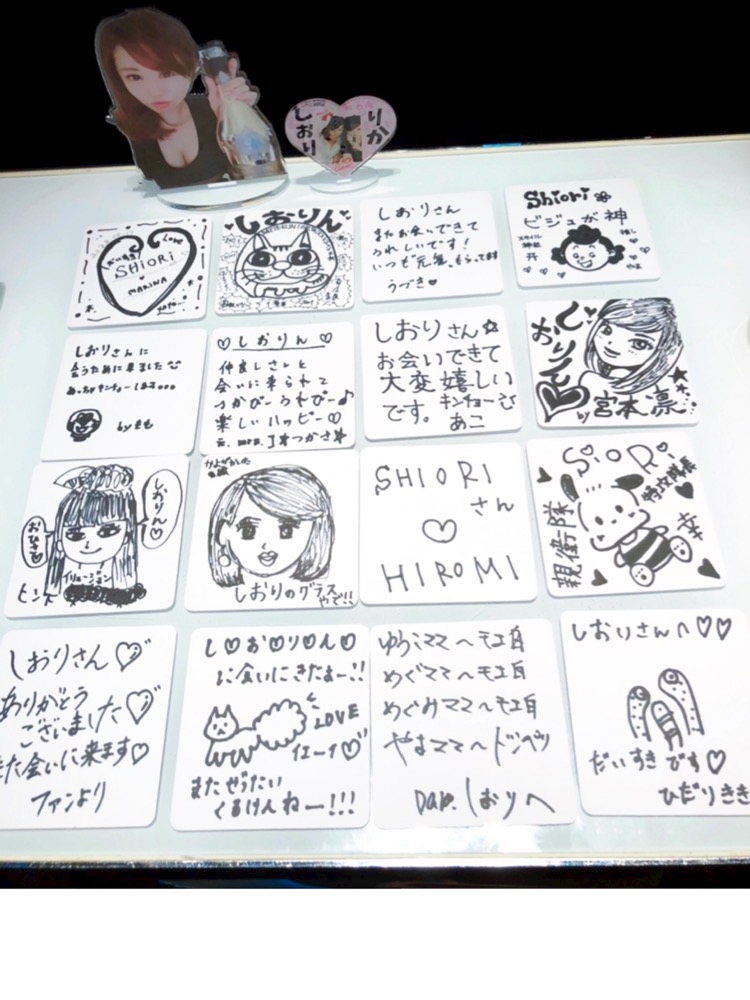 しおり
りか
LOVE
SHiORi
MARINA
しおりん
しおりさん
またお会いできて
うれしいです!
いつも元気もらってます
うづき
Shiori
ビジュが神
推し
しおりさんに
会うために来ました
by もも
しおりん
仲良しさいと
会いに来られて
つかぴーうれぴー♪
楽しいハッピー♡
しおりさん☆
お会いできて
大変嬉しい
です。キンチョー
あこ
しおりん
by 宮本凛
しおりん♡
おひさ♡
イリュージョン
ヒント
しおりのグラス
やで!!
SHIORI
さん
HIROMI
SioRi
特攻隊長
親衛隊
幸
しおりさん♡
ありがとう
ございました♡
また会いに来ます♡
ファンより
し♡お♡り♡ん♡
に会いにきたよー!!
LOVE
イェーイ♡
またぜったい
くるけんねー!!!
めぐママへ
めぐみママへ
やまママへ
しおりへ
しおりさんへ♡♡
だいすきです♡
ひだりきき